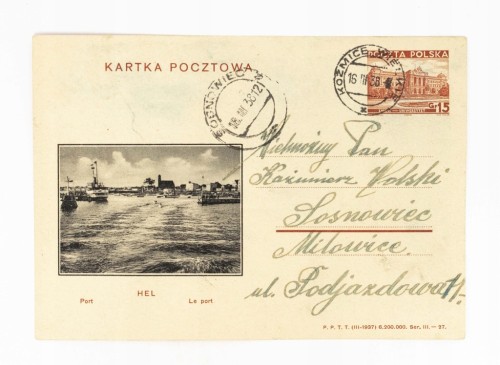 KARTKA POCZTOWA
POCZTA POLSKA
GR 15
KOŹMICE WIELKIE
16 III 38
SOSNOWIEC
18.III.38 12
Wielmożny Pan
Kazimierz Wolski
Sosnowiec
Milowice.
ul. Podjazdowa 11.
HEL
Port
Le port
P. P. T. T. (III-1937)-8.200.000. Ser. III. — 27.